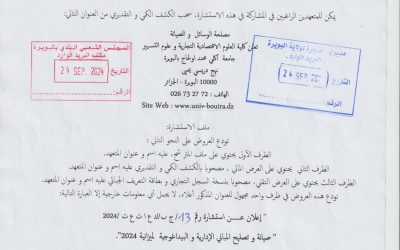 يمكن للمتعهدين الراغبين في المشاركة في هذه الاستشارة، سحب الكشف الكمي و التقديري من العنوان التالي:
مصلحة الوسائل و الصيانة
كلية العلوم الاقتصادية التجارية و علوم التسيير
جامعة آكلي محند اولحاج بالبويرة
نهج دريسي يحيى
10000 البويرة - الجزائر
026 73 27 72 :
Site Web : www.univ-bouira.dz
المجلس الشعبي البلدي بالبويرة
مكتب البريد الوارد
التاريخ 24 SEP. 2024
الرقم:
مديرية
لولاية البويرة
البريد الوارد
التاريخ 24 SEP. 20
الرقم:
ملف الاستشارة:
تودع العروض على النحو التالي:
الظرف الأول يحتوي على ملف الترشح، عليه اسم و عنوان المتعهد.
الظرف الثاني يحتوي على العرض المالي مصحوبا بالكشف الكمي و التقديري عليه اسم و عنوان المتعهد.
الظرف الثالث يحتوي على العرض التقني، مصحوبا بنسخة السجل التجاري و بطاقة التعريف الجبائي عليه اسم و عنوان المتعهد.
تودع هذه العروض في ظرف واحد مجهول للعنوان المذكور أعلاه، لا يحمل أي معلومات خارجية إلا العبارة التالية:
"إعلان عن استشارة رقم 13/ج ب/ك ع ا ت ع ت/2024
" صيانة و تصليح المباني الإدارية و البيداغوجية لميزانية 2024"